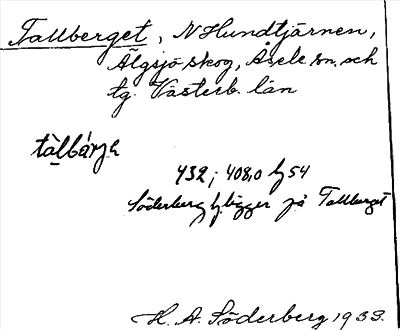 Tallberget, N Hundtjärnen,
Älgsjö skog, Åsele sn. och
tg. Västerb. län
tàlbárjə
432; 408,0 hj 54
Söderberg hj. ligger på Tallberget
H. A. Söderberg 1933.